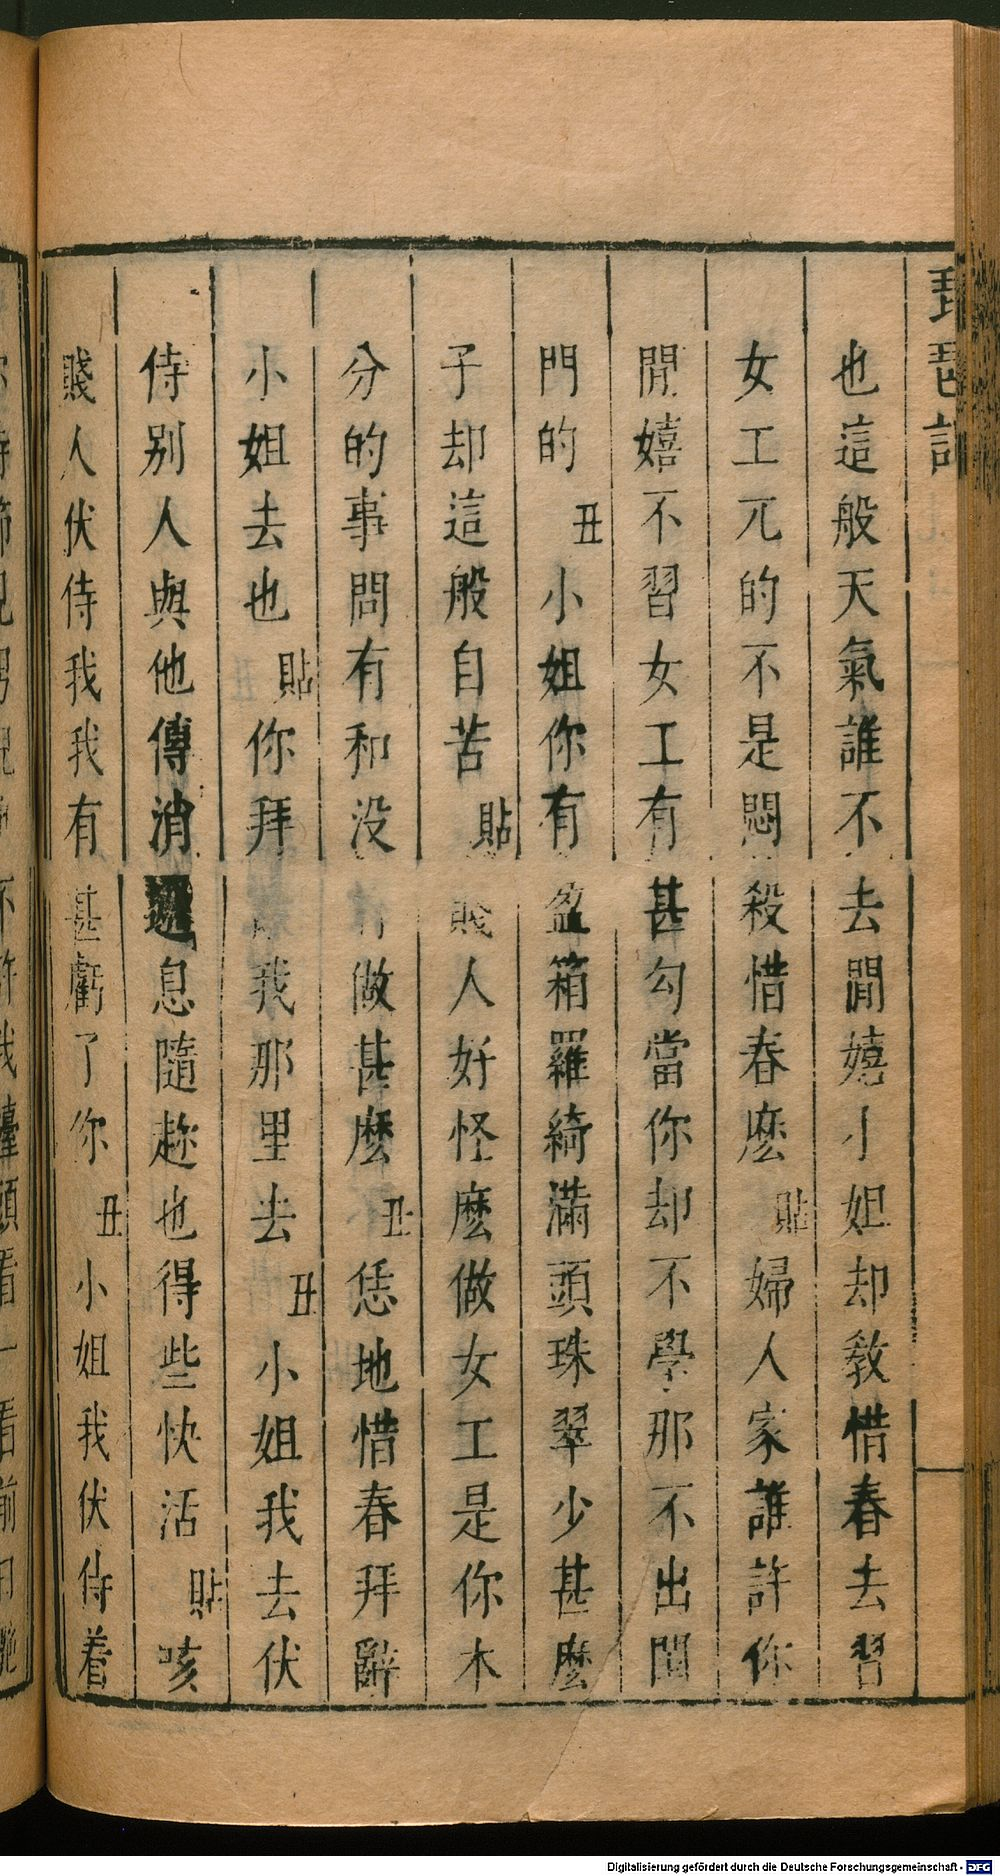 琵琶記
也這般天氣誰不去閒嬉小姐却教惜春去習
女工兀的不是悶殺惜春麽貼婦人家誰許你
閒嬉不習女工有甚勾當你却不學那不出閨
門的丑小姐你有盈箱羅綺滿頭珠翠少甚麽
子却這般自苦貼賤人好怪麽做女工是你本
分的事問有和没做甚麽丑恁地惜春拜辭
小姐去也貼你拜我那里去丑小姐我去伏
侍别人與他傳消遞息隨趂也得些快活貼咳
賤人伏侍我我有甚虧了你丑小姐我伏侍着
Digitalisierung gefördert durch die Deutsche Forschungsgemeinschaft - DFG